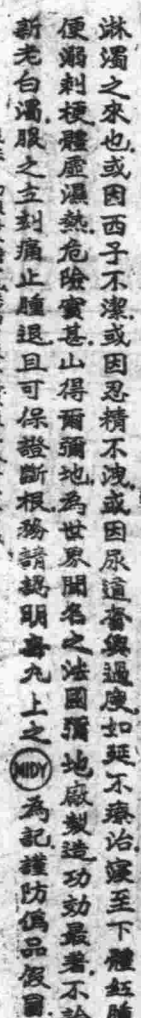 淋濁之來也或因西子不潔或因忍精不洩或因尿道奮興過度如延不療治寖至下體紅腫
便溺刺梗體虛濕熱危險實甚山得爾彌地為世界聞名之法國彌地廠製造功効最著不論
新老白濁服之立刻痛止腫退且可保證斷根務請認明每丸上之MIDY為記謹防僞品假冒